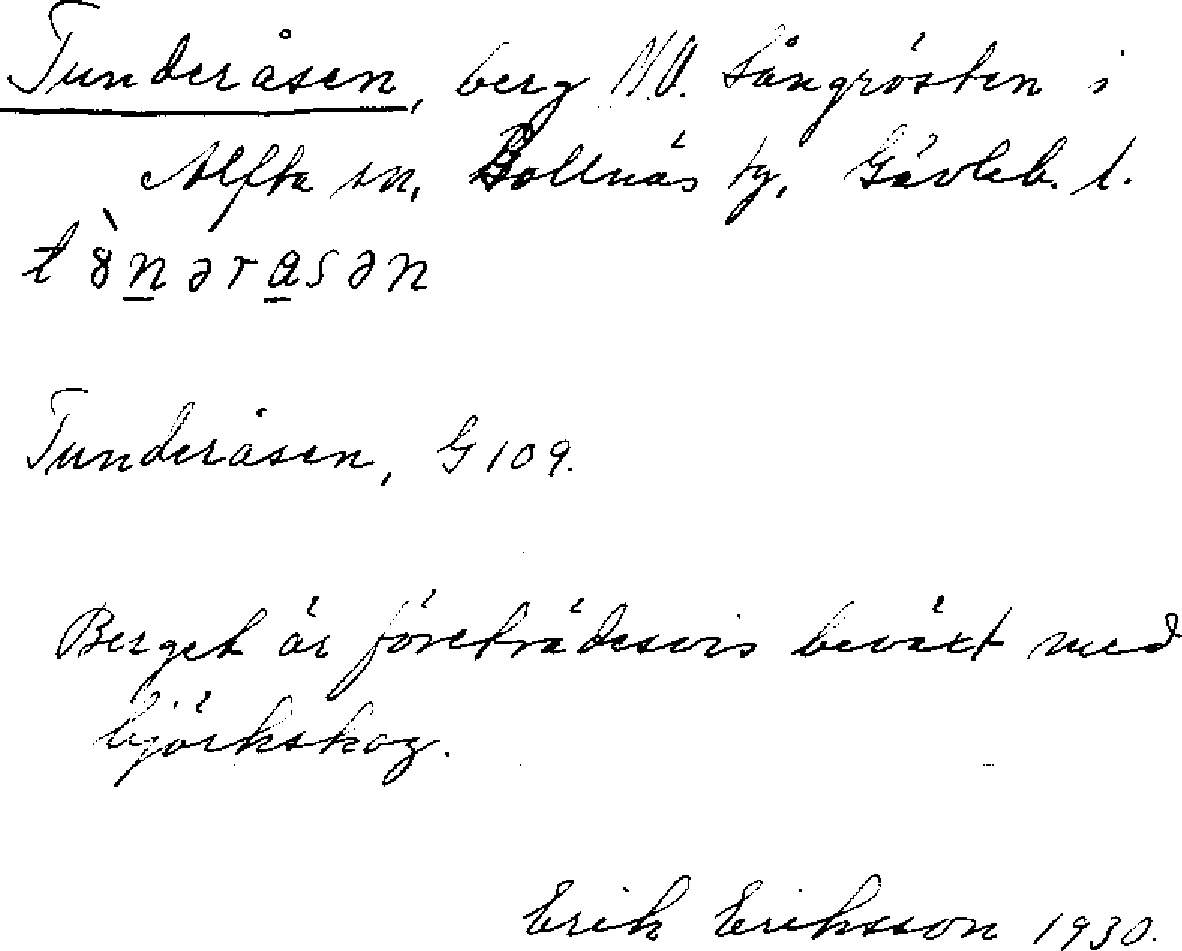 Tunderåsen, berg NV. Långrösten i
Alfta sn, Bollnäs tg, Gävleb. l.
Tunderåsen, G 109.
Berget är företrädesvis beväxt med
björkskog.
Erik Eriksson 1930.